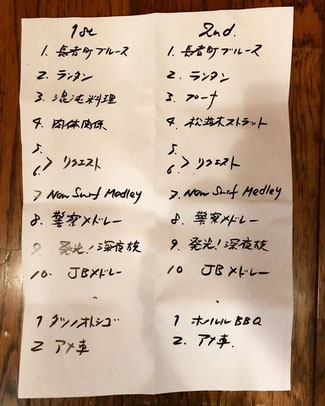 1st
1. 長者町ブルース
2. ランタン
3. 混沌料理
4. 肉体関係
5.
6. > リクエスト
7 New Surf Medley
8. 警察メドレー
9 発光!深夜族
10. JBメドレー
1 タツノオトシゴ
2 アメ車
2nd.
1. 長者町ブルース
2. ランタン
3. プーナ
4. 松並木ストラット
5.
6. > リクエスト
7. New Surf Medley
8. 警察メドレー
9. 発光!深夜族
10 JBメドレー
1 ホノルルBBQ
2. アメ車